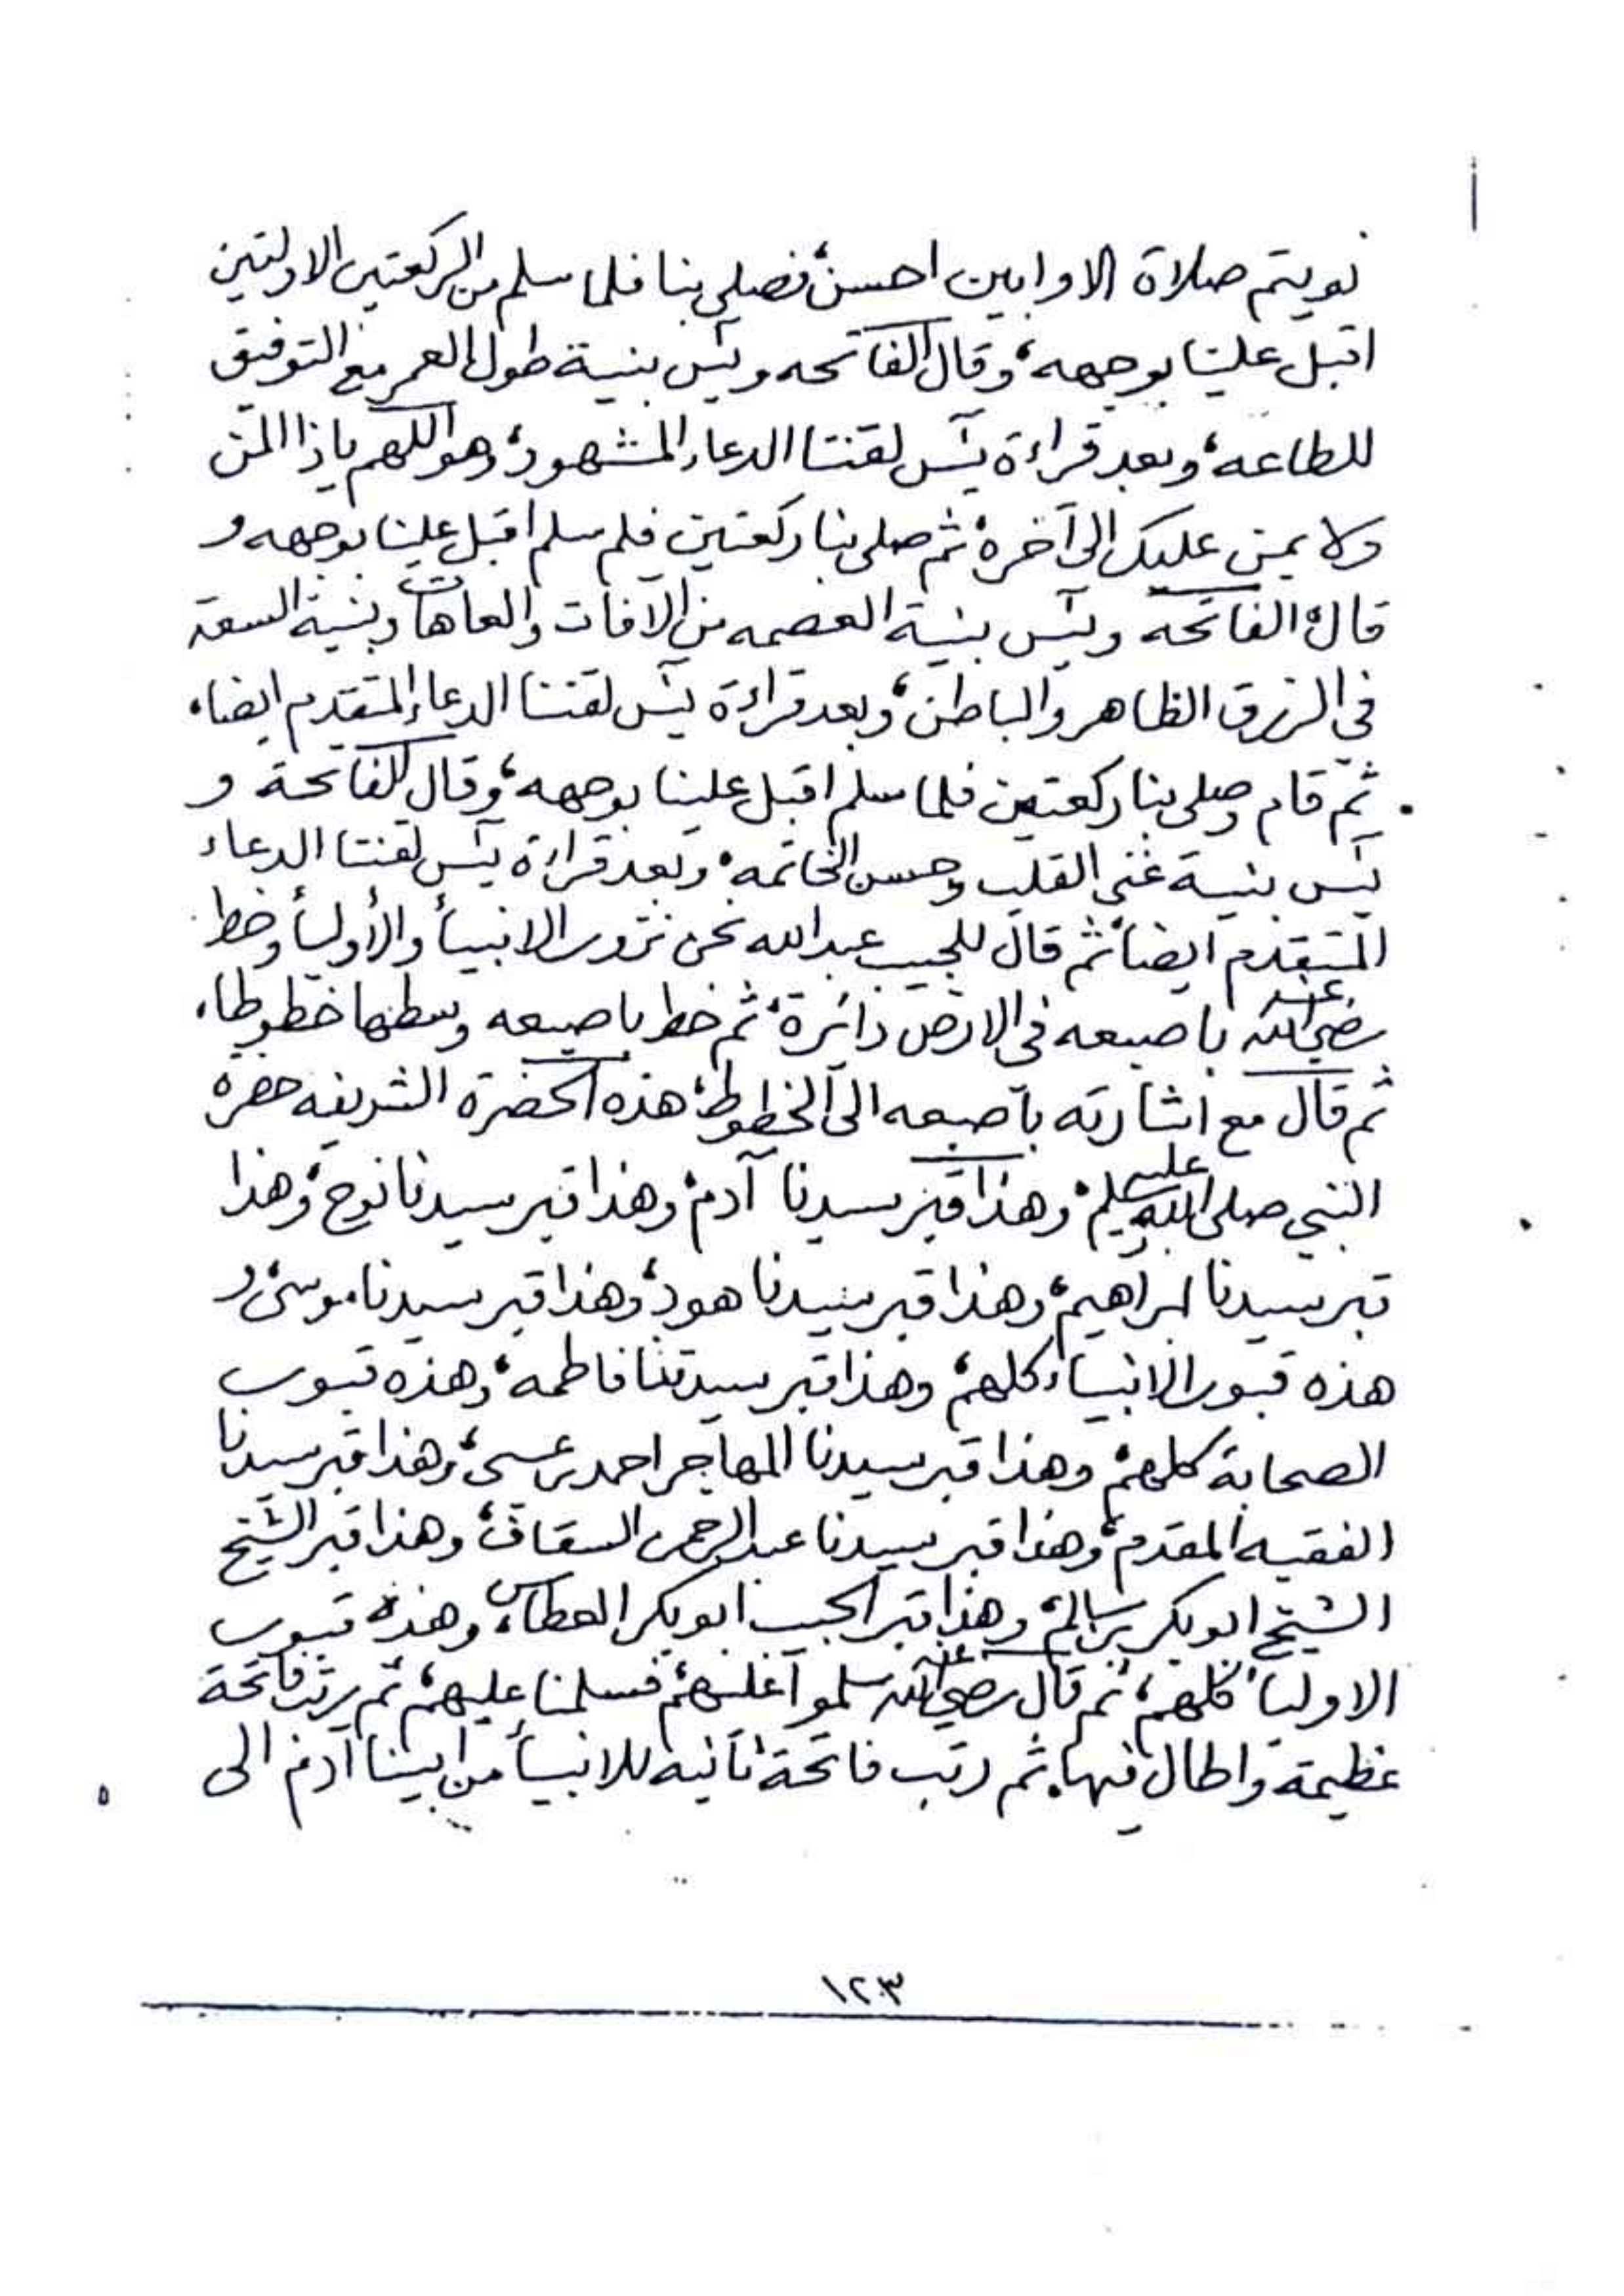 نويتم صلاة الاوابين احسن، فصلى بنا فلما سلم من الركعتين الاولتين
اقبل علينا بوجهه، وقال الفاتحه ويس بنية طول العمر مع التوفيق
للطاعه، وبعد قراءة يس لقننا الدعاء المشهور، وهو اللهم ياذا المن
ولا يمن عليك الى آخره، ثم صلى بنا ركعتين فلم سلم اقبل علينا بوجهه و
قال، الفاتحه ويس بنية العصمه من الآفات والعاهات وبنية السعة
في الرزق الظاهر والباطن، وبعد قراءة يس لقننا الدعاء المتقدم ايضا،
ثم قام وصلى بنا ركعتين فلما سلم اقبل علينا بوجهه، وقال الفاتحة و
يس بنية غنى القلب وحسن الخاتمه، وبعد قراءة يس لقننا الدعاء
المتقدم ايضا، ثم قال للحبيب عبدالله نحن نزور الانبيأ والأوليأ وخط
رضي الله عنه باصبعه في الارض دائرة، ثم خط باصبعه وسطها خطوطا،
ثم قال مع اشارته باصبعه الى الخطوط، هذه الحضرة الشريفه حضرة
النبي صلى الله عليه وسلم، وهذا قبر سيدنا آدم، وهذا قبر سيدنا نوح، وهذا
قبر سيدنا ابراهيم، وهذا قبر سيدنا هود، وهذا قبر سيدنا موسى، و
هذه قبور الانبياء كلهم، وهذا قبر سيدتنا فاطمه، وهذه قبور
الصحابة كلهم، وهذا قبر سيدنا المهاجر احمد بن عسى، وهذا قبر سيدنا
الفقيه المقدم، وهذا قبر سيدنا عبدالرحمن السقاف، وهذا قبر الشيخ
الشيخ ابوبكر بن سالم، وهذا قبر الحبيب ابوبكر العطاس، وهذه قبور
الاوليأ كلهم، ثم قال رضي الله عنه سلموا عليهم، فسلمنا عليهم، ثم رتب فاتحة
عظيمة واطال فيها، ثم رتب فاتحة ثانيه للانبيأ من ابينا آدم الى
١٢٣